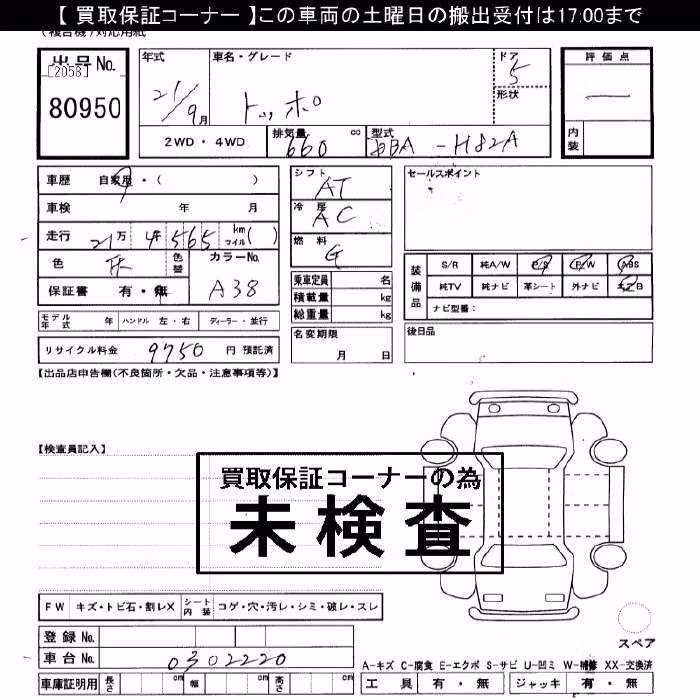 【 買取保証コーナー 】この車両の土曜日の搬出受付は17:00まで
(複合機)対応用紙
出品No.
[2058]
80950
年式
21/9月
車名・グレード
トッポ
ドア
5
形状
評価点
—
内装
2WD・4WD
排気量
660 cc
型式
DBA-H82A
車歴 自家用・( )
車検 年 月
走行 21万4千565 km マイル( )
色 灰 色替
カラーNo. A38
保証書 有・無
シフト
AT
冷房
AC
燃料
G
乗車定員 名
積載量 kg
総重量 kg
セールスポイント
装備品
S/R 純A/W P/S P/W ABS
純TV 純ナビ 革シート 外ナビ エアB
ナビ型番:
モデル年式 年 ハンドル 左・右 ディーラー・並行
リサイクル料金 9750 円 預託済
名変期限
月 日
後日品
【出品店申告欄(不良箇所・欠品・注意事項等)】
【検査員記入】
買取保証コーナーの為
未検査
FW キズ・トビ石・割レX シート内装 コゲ・穴・汚レ・シミ・破レ・スレ
登録No.
車台No. 0302220
車庫証明用 長さ cm 幅 cm 高さ cm
スペア
A-キズ C-腐食 E-エクボ S-サビ U-凹ミ W-補修 XX-交換済
工具 有・無 ジャッキ 有・無